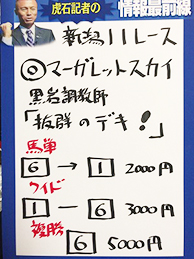 虎石記者の情報最前線
新潟11レース
◎マーガレットスカイ
黒岩調教師
「抜群のデキ!」
馬単
6→1 2000円
ワイド
1-6 3000円
複勝
6 5000円